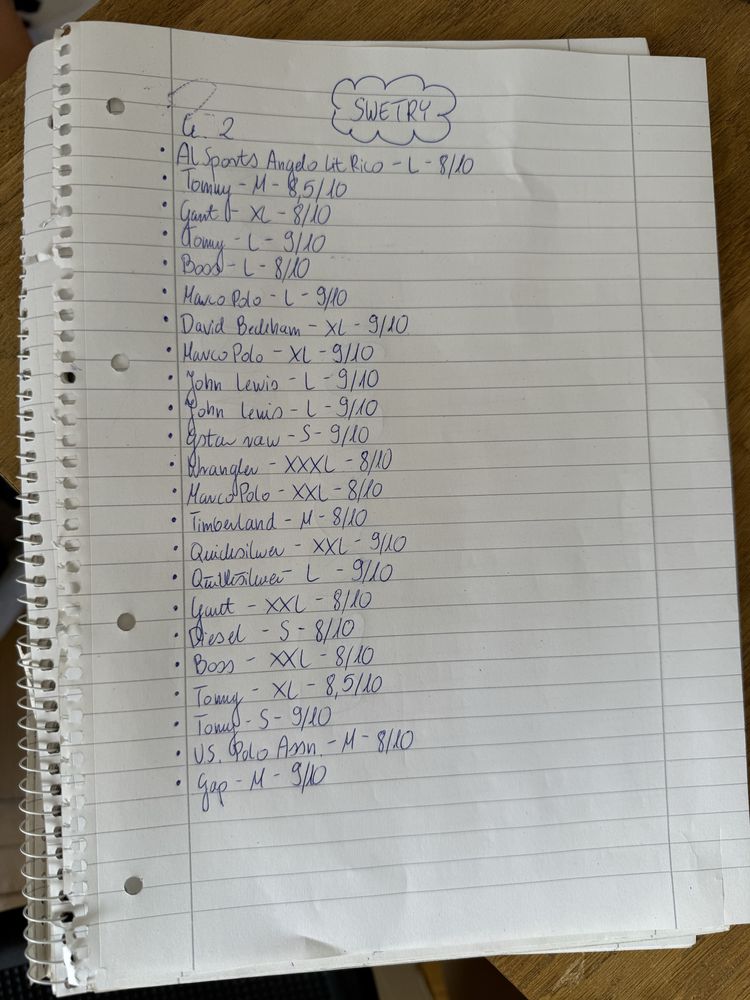 SWETRY
2
• Al Sports Angelo Lit Rico - L - 8/10
• Tommy - M - 8,5/10
• Gant - XL - 8/10
• Tomy - L - 9/10
• Boss - L - 8/10
• Marco Polo - L - 9/10
• David Beckham - XL - 9/10
• Marco Polo - XL - 9/10
• John Lewis - L - 9/10
• John Lewis - L - 9/10
• Gstar raw - S - 9/10
• Wrangler - XXXL - 8/10
• Marco Polo - XXL - 8/10
• Timberland - M - 8/10
• Quicksilwer - XXL - 9/10
• Quicksilwer - L - 9/10
• Gant - XXL - 8/10
• Diesel - S - 8/10
• Boss - XXL - 8/10
• Tomy - XL - 8,5/10
• Tomy - S - 9/10
• U.S. Polo Assn. - M - 8/10
• Gap - M - 9/10